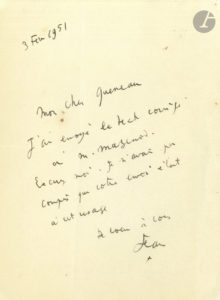 3 Fev 1951
Mon cher Queneau
J'ai envoyé le text corrigé
à M. Mazenod.
Excusez moi. Je n'avais pas
compris que votre envoi était
à cet usage
de cœur à vous
Jean